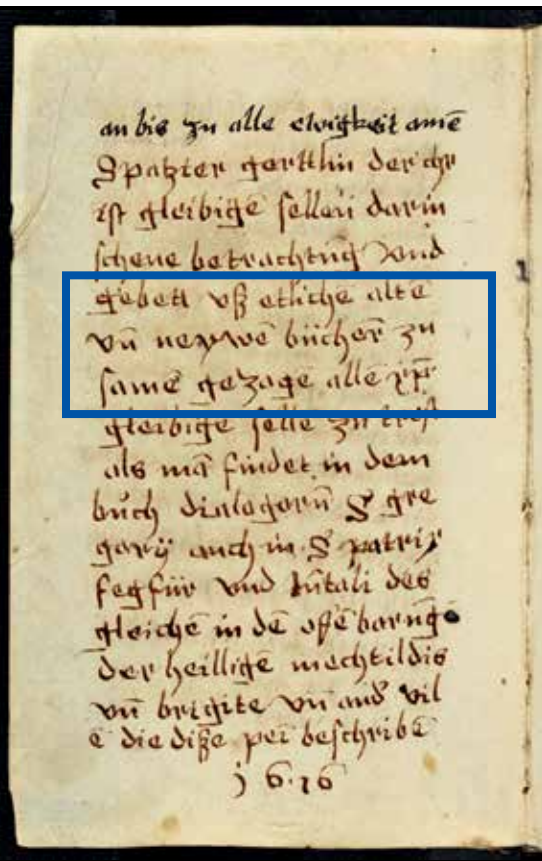 an bis zu alle ewigkeit amē
Spatzier gerttlin der chr
ist gleibigē sellen darin
schene betrachtūg vnd
gebett vß etlichē alte
vn̄ neywē büchern̄ zu
samē gezogē alle xp̄
gleibigē selle zu trost
als mā findet in dem
büch dialogorū S gre
gory auch in S patriz
fegfür vnd des
gleichē in dē offēbarūgē
der heilligē mechtildis
vn̄ brigite vn̄ and vil
ē die dißē pei beschribē
j 6·16